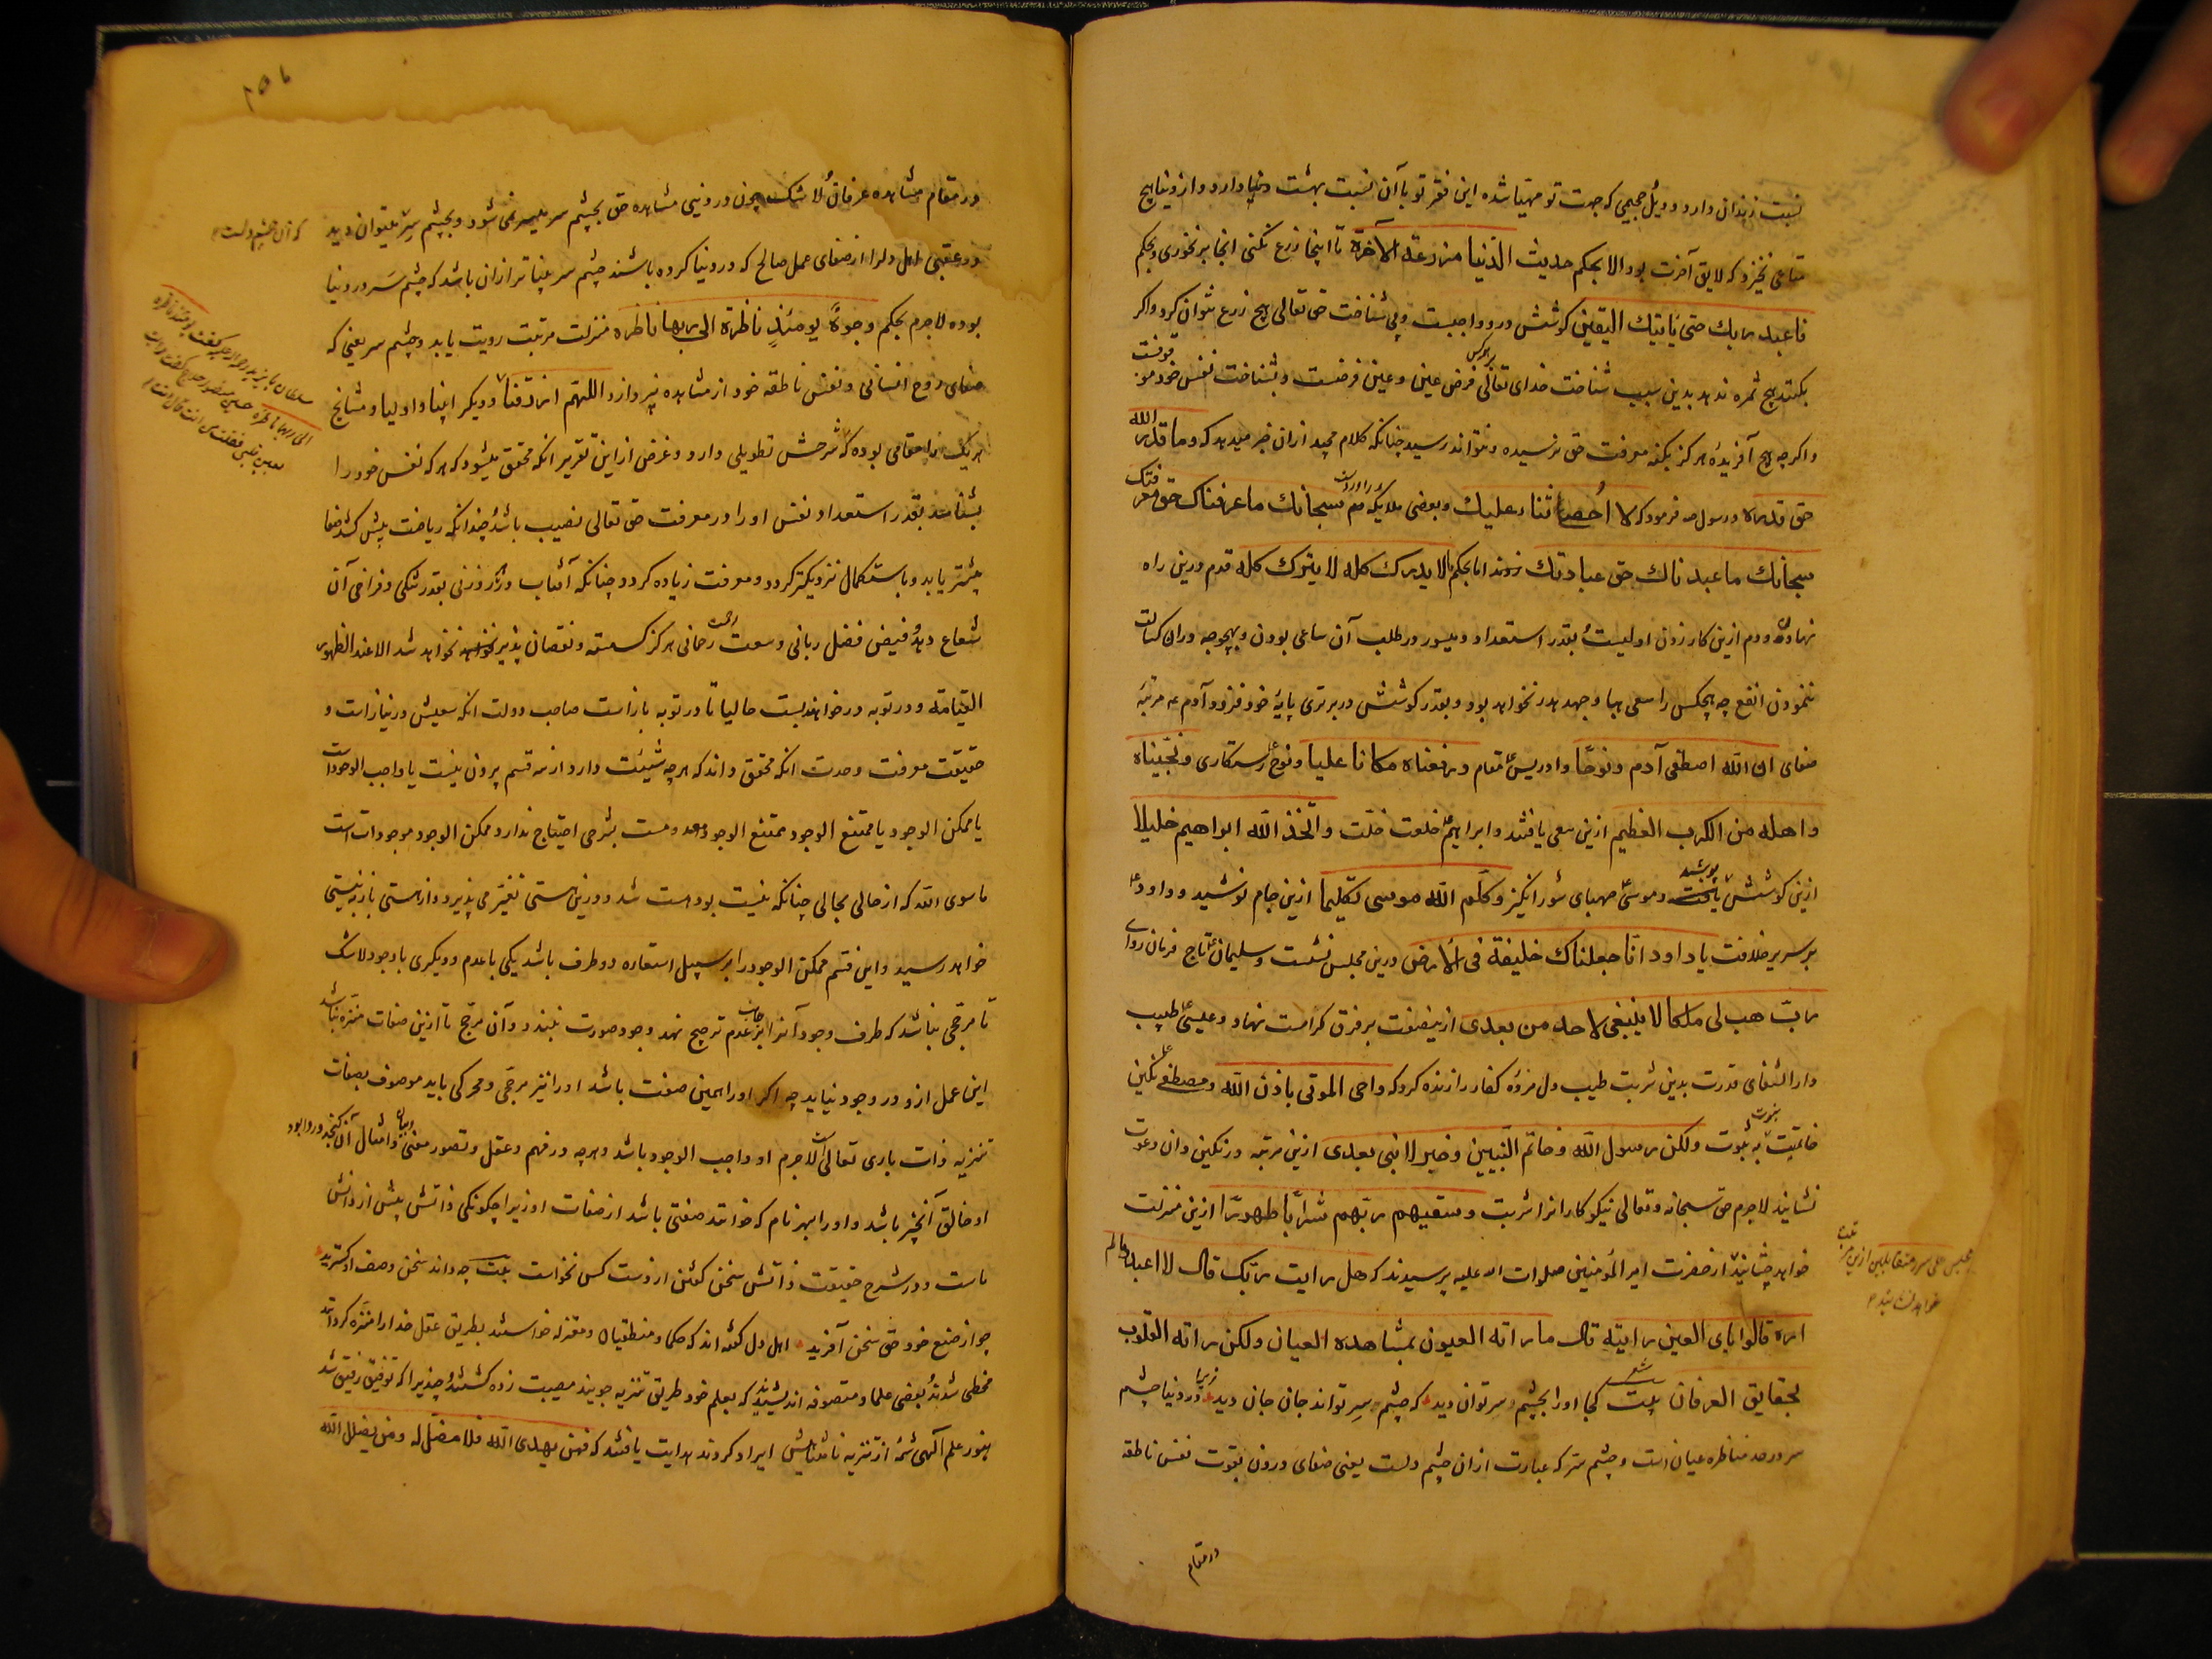 نسبت زندان دارد و ویل جحیمی که جهت تو مهیا شده این فقر تو با آن نسبت بهشت دنیا دارد و از دنیا هیچ
متاعی نخیزد که لایق آخرت بود الا بحکم حدیث الدنیا مزرعة الآخرة تا اینجا زرع نکنی انجا بر نخوری و بحکم
فاعبد ربك حتی یأتیك الیقین کوشش درو واجبست و بی شناخت حق تعالی هیچ زرع نتوان کرد و اگر
بکنند هیچ ثمره ندهد بدین سبب شناخت خدای تعالی بر هرکس فرض عین و عین فرضست و بشناخت نفس خود موقوفست
و اگرچه هیچ آفریده هرگز بکنه معرفت حق نرسیده و نتواند رسید چنانکه کلام مجید ازان خبر میدهد که وما قدروا الله
حق قدره و رسول صه فرمود که لا أحصی ثناء علیك و بعضی ملایکه هم سبحانك ما عرفناك حق معرفتك
سبحانك ما عبدناك حق عبادتك زدند اما بحکم ما لا یدرك کله لا یترك کله قدم درین راه
نهادن و دم ازین کار زدن اولیست بقدر استعداد و میسور در طلب آن ساعی بودن و بهیچوجه دران کسالت
ننمودن انفع چه هیچکس را سعی هبا و جهد هدر نخواهد بود و بقدر کوشش در برتری پایه خود فزود آدم عه مرتبه
صفای ان الله اصطفی آدم ونوحا و ادریس ع مقام ورفعناه مکانا علیا و نوح ع رستکاری ونجّیناه
واهله من الکرب العظیم ازین سعی یافتند و ابراهیم ع خلعت خلّت واتّخذ الله ابراهیم خلیلا
ازین کوشش پوشید و موسی ع صهبای شورانگیز وکلّم الله موسی تکلیما ازین جام نوشید و داود ع
بر سریر خلافت یا داود انّا جعلناك خلیفة فی الارض درین مجلس نشست و سلیمان ع تاج فرمان روای
ربّ هب لی ملکا لا ینبغی لاحد من بعدی ازینصفت بر فرق کرامت نهاد و عیسی ع طبیب
دار الشفای قدرت بدین شربت طبیب دل مرده کفار را زنده کرد که واحی الموتی باذن الله و مصطفی ع نکین
خاتمیّت نبوت ولکن رسول الله وخاتم النّبیین وخبر لا نبی بعدی ازین مرتبه در نکین دان دعوت
نشانید لاجرم حق سبحانه و تعالی نیکو کارانرا شربت وسقیهم ربّهم شرابا طهورا ازین منزلت
خواهد چشانید از حضرت امیر المؤمنین صلوات الله علیه پرسیدند که هل رایت ربّك قال لا اعبد ربا لم
اره قالوا بای العین رایته قال ما راته العیون بمشاهدة العیان ولکن راته القلوب
بحقایق العرفان بیت کجا او را بچشم سر توان دید که چشم سر تواند جان جان دید زیرا در دنیا چشم
سر در صد مناظره عیان است و چشم سرّ که عبارت ازان چشم دلست یعنی صفای درون بقوت نفس ناطقه
در مقام
در مقام مشاهده عرفان لا شک چون در دنیی مشاهده حق بچشم سر میسر نمی شود و بچشم سرّ میتوان دید
که آن چشم دلست
در عقبی اهل دلرا از صفای عمل صالح که در دنیا کرده باشند چشم سر بینا تر ازان باشد که چشم سرّ در دنیا
بوده لاجرم بحکم وجوه یومئذٍ ناظرة الی ربها ناظره منزلت مرتبت رویت یابد و چشم سر یعنی که
صفای روح انسانی و نفس ناطقه خود از مشاهده نپردازد اللهم ارزقنا و دیکر انبیا و اولیا و مشایخ
هر یک را مقامی بوده که شرحش تطویلی دارد و غرض ازین تقریر انکه محقق میشود که هر که نفس خود را
بشناسد بقدر استعداد نفس او را در معرفت حق تعالی نصیب باشد چندانکه ریاضت بیش کشد صفا
بیشتر یابد و باستکمال نزدیکتر کردد و معرفت زیاده کردد چنانکه آفتاب در هر روزنی بقدر تنکی و فراخی آن
شعاع دهد و فیض فضل ربانی و سعت رحمت رحمانی هرکز کسسته و نقصان پذیر نخواهد شد الا عند الظهور
القیامة و در توبه در خواهد بست حالیا تا در توبه بازاست صاحب دولت انکه سعیش در نیازاست و
حقیقت معرفت وحدت انکه محقق داند که هرچه شیئیت دارد از سه قسم برون نیست یا واجب الوجوداست
یا ممکن الوجود یا ممتنع الوجود ممتنع الوجود معدومست بشرحی احتیاج ندارد و ممکن الوجود موجوداتست
ما سوی الله که از حالی بحالی چنانکه نیست بود هست شد و درین هستی تغیّر می پذیرد و از هستی باز به نیستی
خواهد رسید و این قسم ممکن الوجود را بر سبیل استعاره دو طرف باشد یکی با عدم و دیکری با وجود لا شک
تا مرجحی نباشد که طرف وجود آنرا بر جانب عدم ترجیح نهد وجود صورت نبندد و آن مرجح تا ازین صفات منزه نباشد
این عمل ازو در وجود نیاید چه اکر او را همین صفت باشد او را نیز مرجحی و محرکی باید موصوف بصفات
تنزیه ذات باری تعالی لاجرم او واجب الوجود باشد و هرچه در فهم و عقل و تصور معنی و بیان و امثال آن کنجد و روا بود
او خالق آنچیز باشد و او را بهر نام که خوانند صفتی باشد از صفات او زیرا چکونکی ذاتش بیش از دانش
ماست و در شرح حقیقت ذاتش سخن کفتن از دست کس نخواست بیت چه داند سخن وصف او کسترید
چو از صنع خود حق سخن آفرید اهل دل کفته اند که حکما و منطقیان و معتزله خواستند بطریق عقل خدا را منزه کردانند
مخطی شدند و بعضی علما و متصوفه اندیشیدند که بعلم خود طریق تنزیه جویند مصیبت زده کشتند و چندیرا که توفیق رفیق شد
بنور علم الهی شمّه از تنزیه ذاتش ایراد کردند هدایت یافتند که فمن یهدی الله فلا مضلّ له ومن یضلل الله